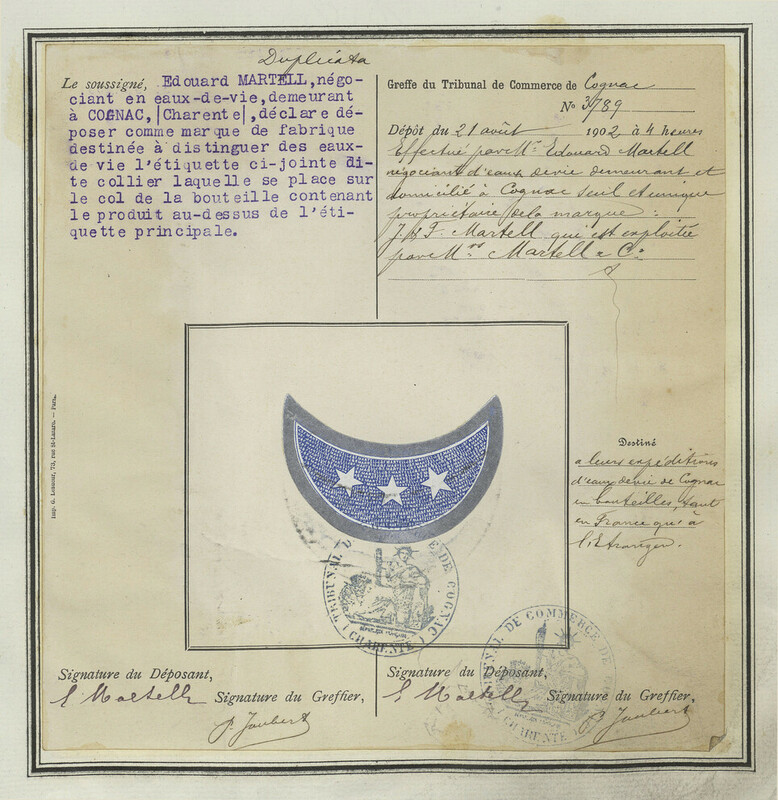 Duplicata
Le soussigné, Edouard MARTELL, négo-
ciant en eaux-de-vie, demeurant
à COGNAC, |Charente|, déclare dé-
poser comme marque de fabrique
destinée à distinguer des eaux-
de vie l'étiquette ci-jointe di-
te collier laquelle se place sur
le col de la bouteille contenant
le produit au-dessus de l'éti-
quette principale.
Greffe du Tribunal de Commerce de Cognac
No 3789
Dépôt du 21 août 1902 à 4 heures
Effectué par Mr. Edouard Martell
négociant d'eaux devie demeurant et
domicilié à Cognac seul et unique
propriétaire dela marque :
J & F. Martell qui est exploitée
par Mrs Martell & Co
Imp. G. Lesueur, 73, rue St-Lazare. — Paris.
Destiné
a leurs expéditions
d'eaux devie de Cognac
en bouteilles, tant
en France qu'à
l'étranger.
TRIBUNAL DE COMMERCE DE COGNAC
RÉPUBLIQUE FRANÇAISE
( CHARENTE )
TRIBUNAL DE COMMERCE DE COGNAC
( CHARENTE )
Signature du Déposant,
E Martell
Signature du Greffier,
P. Joubert
Signature du Déposant,
E Martell
Signature du Greffier,
P. Joubert